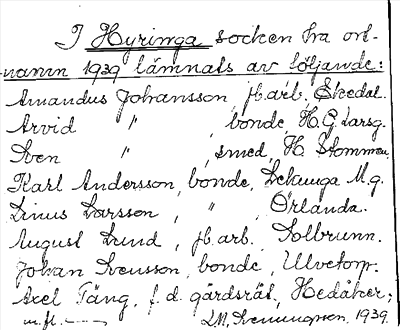 I Hyringa socken ha ort-
namn 1939 lämnats av följande:
Amandus Johansson, jb.arb. Skedal.
Arvid " , bonde, H. G. Larsg.
Sven " , smed, H. Stommen.
Karl Andersson, bonde, Lekunga M.g.
Linus Larsson, " , Örlanda.
August Lund, jb. arb. Solbrunn.
Johan Svensson, bonde, Ulvetorp.
Axel Täng, f.d. gårdsrät, Hedåker;
m.fl. — L.M. Svenungsson, 1939.